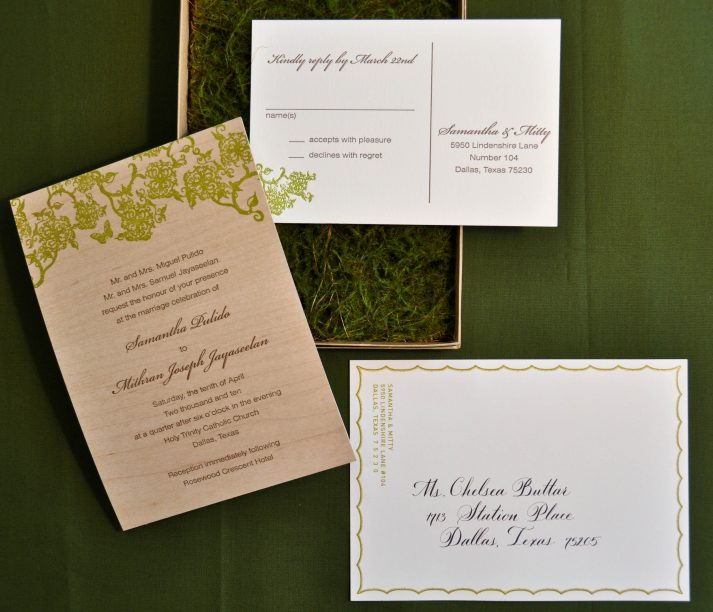 Kindly reply by March 22nd
name(s)
accepts with pleasure
declines with regret
Samantha & Mitty
5950 Lindenshire Lane
Number 104
Dallas, Texas 75230
Mr. and Mrs. Miguel Pulido
Mr. and Mrs. Samuel Jayaseelan
request the honour of your presence
at the marriage celebration of
Samantha Pulido
to
Mithran Joseph Jayaseelan
Saturday, the tenth of April
Two thousand and ten
at a quarter after six o'clock in the evening
Holy Trinity Catholic Church
Dallas, Texas
Reception immediately following
Rosewood Crescent Hotel
SAMANTHA & MITTY
5950 LINDENSHIRE LANE #104
DALLAS, TEXAS 75230
Ms. Chelsea Buttar
1913 Station Place
Dallas, Texas 75205